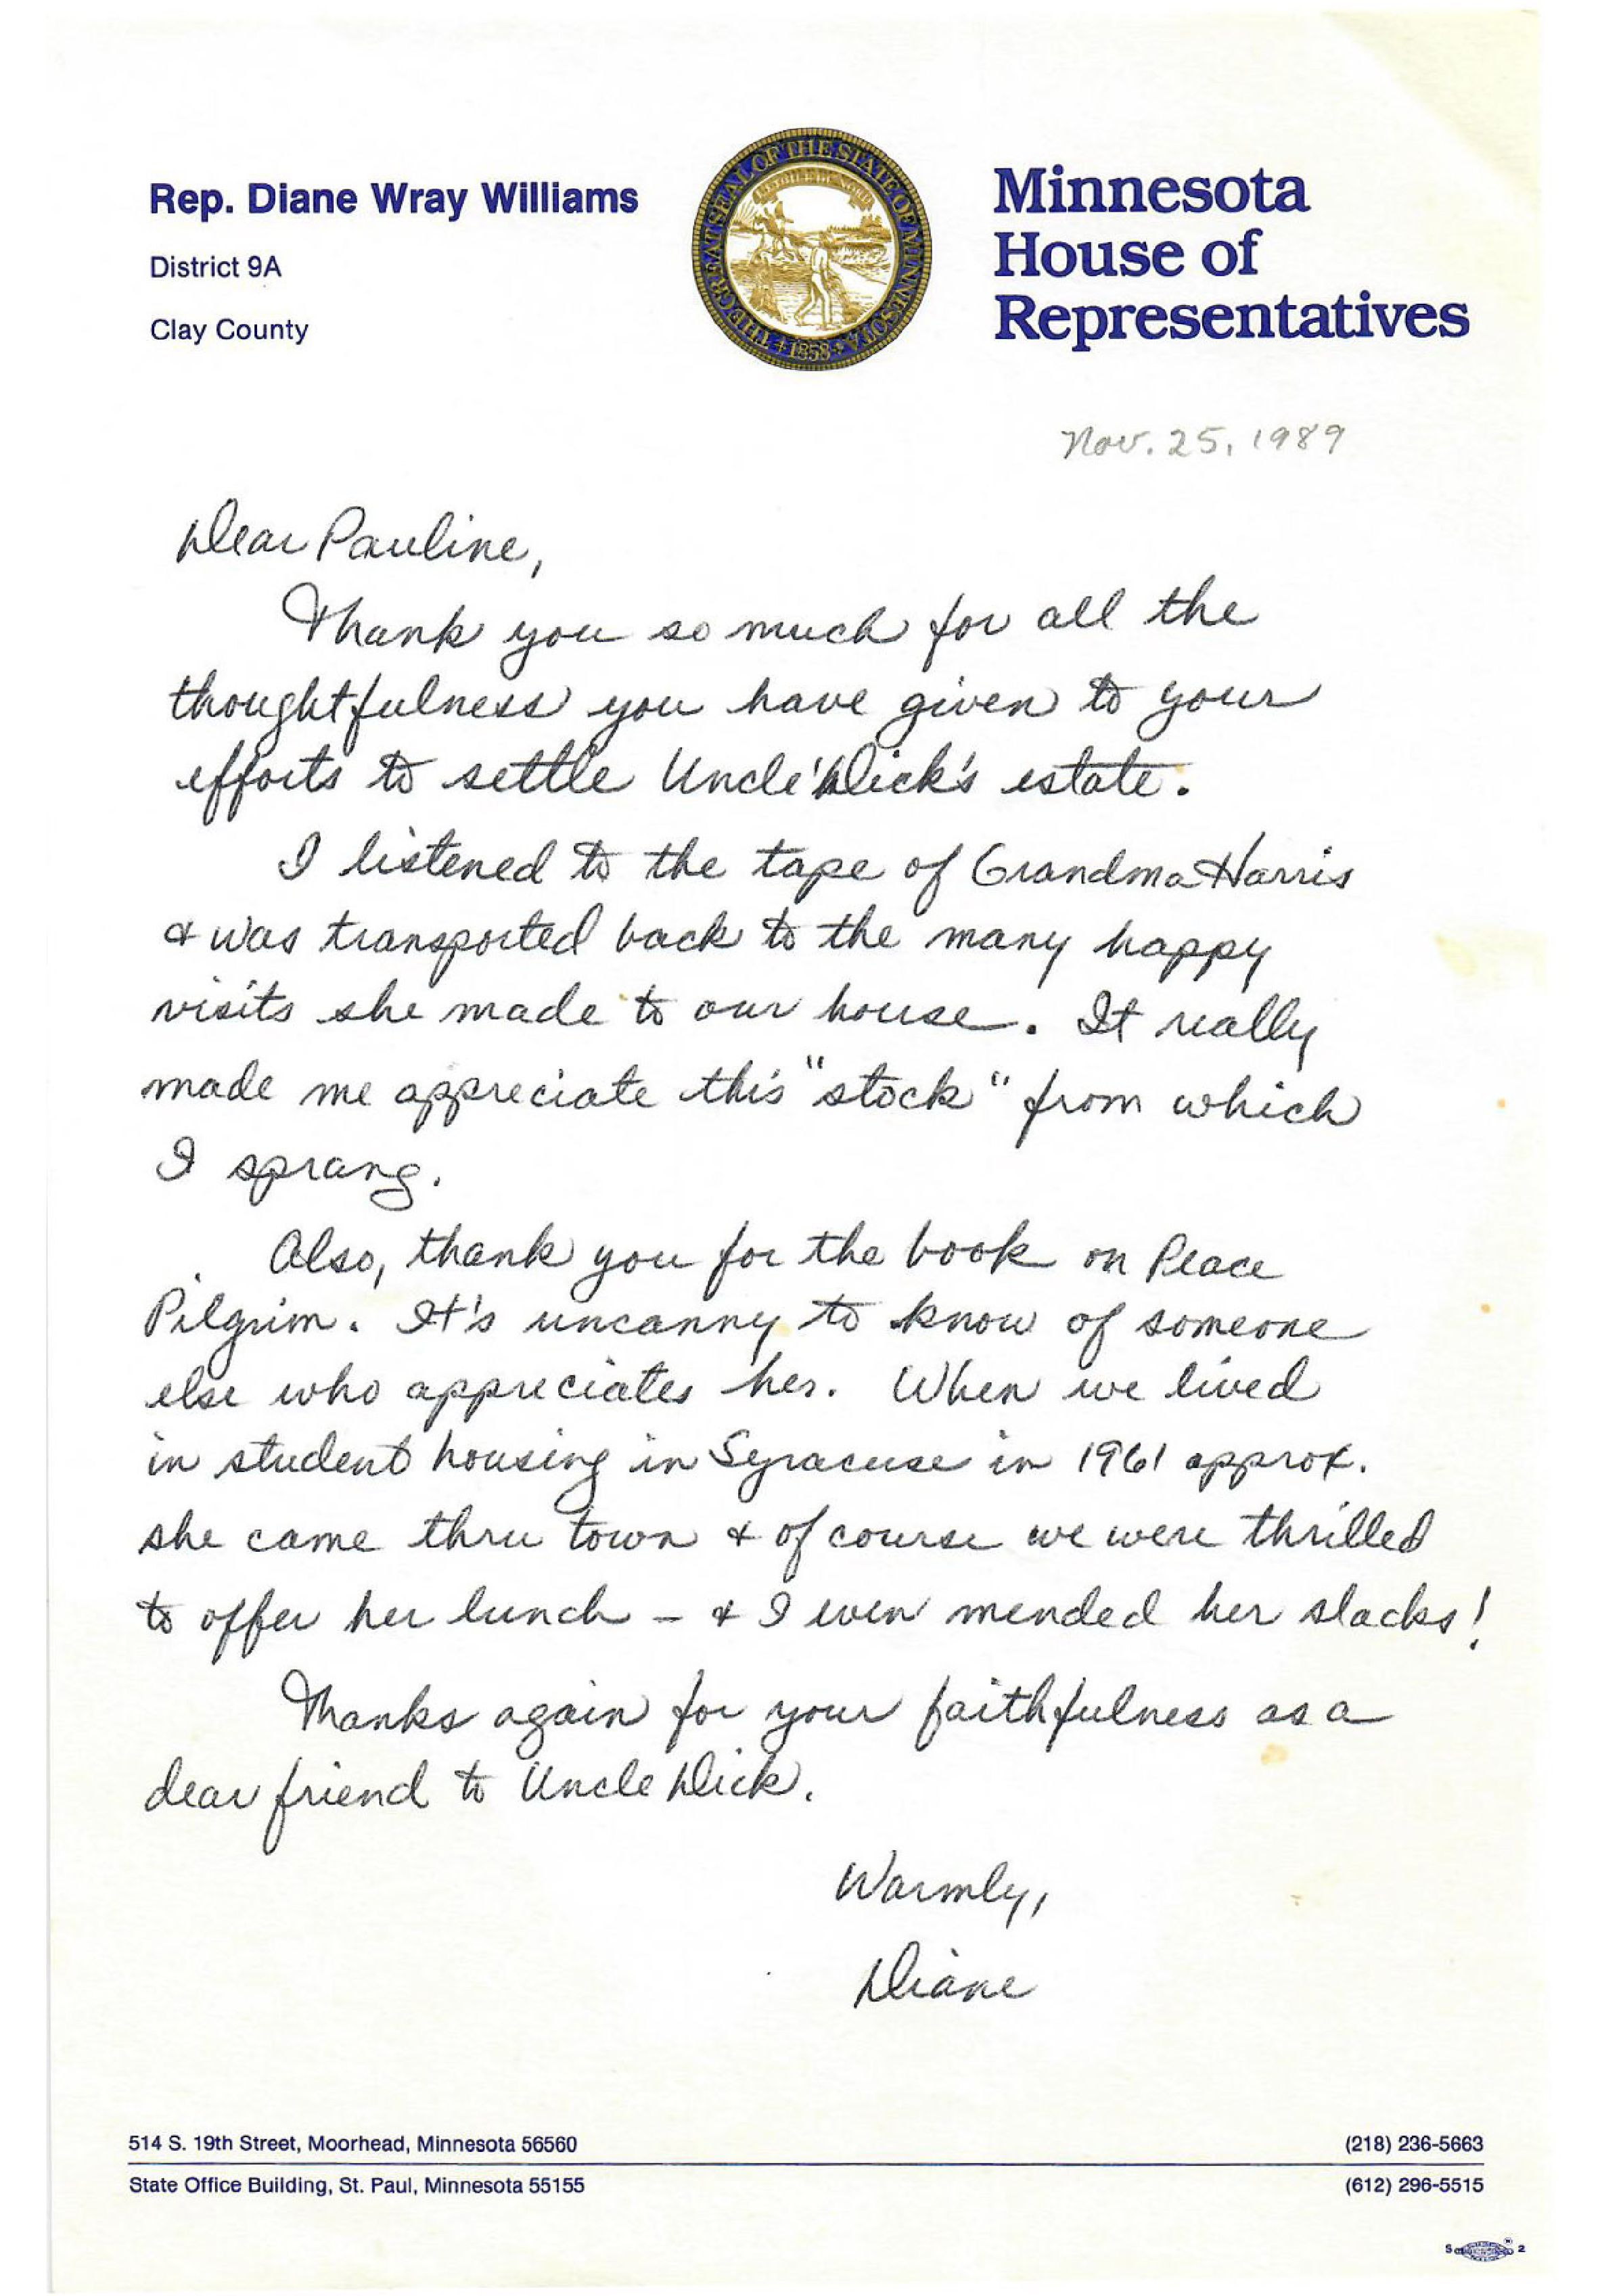 Rep. Diane Wray Williams
District 9A
Clay County
THE GREAT SEAL OF THE STATE OF MINNESOTA
L'ETOILE DU NORD
1858
Minnesota
House of
Representatives
Nov. 25, 1989
Dear Pauline,
Thank you so much for all the
thoughtfulness you have given to your
efforts to settle Uncle Dick's estate.
I listened to the tape of Grandma Harris
& was transported back to the many happy
visits she made to our house. It really
made me appreciate this "stock" from which
I sprang.
Also, thank you for the book on Peace
Pilgrim. It's uncanny to know of someone
else who appreciates her. When we lived
in student housing in Syracuse in 1961 approx.
she came thru town & of course we were thrilled
to offer her lunch – & I even mended her slacks!
Thanks again for your faithfulness as a
dear friend to Uncle Dick.
Warmly,
Diane
514 S. 19th Street, Moorhead, Minnesota 56560
(218) 236-5663
State Office Building, St. Paul, Minnesota 55155
(612) 296-5515